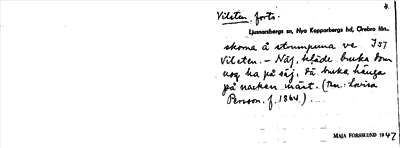 4.
Vilsten, forts.
Ljusnarsbergs sn, Nya Kopparbergs hd, Örebro län.
skorna å strumpuna ve
Vilsten. – Näj, kläde bruka dom
nog ha på säj, dä bruka hänga
på nacken märt. (Ber.: Lovisa
Persson, f. 1864).
MAJA FORSSLUND 1942